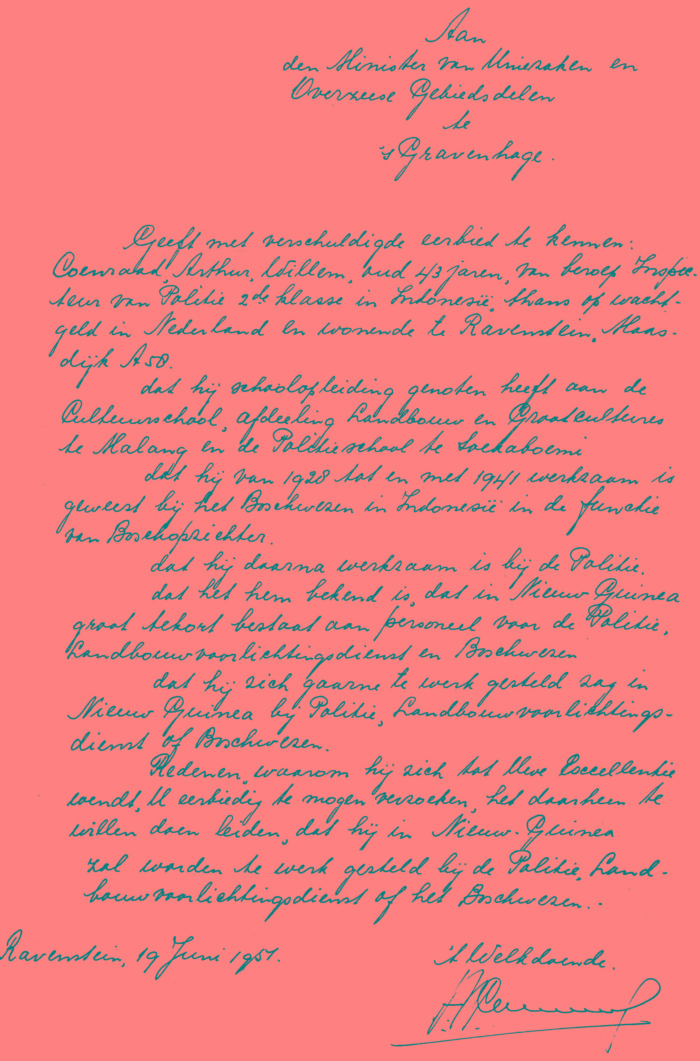 Aan
den Minister van Uniezaken en
Overzeese Gebiedsdelen
te
's Gravenhage.
Geeft met verschuldigde eerbied te kennen:
Coenraad, Arthur, Willem, oud 43 jaren, van beroep Inspec-
teur van Politie 2de klasse in Indonesië, thans op wacht-
geld in Nederland en wonende te Ravenstein, Maas-
dijk A 58.
dat hij schoolopleiding genoten heeft aan de
Cultuurschool, afdeeling Landbouw en Grootcultures
te Malang en de Politieschool te Soekaboemi
dat hij van 1928 tot en met 1941 werkzaam is
geweest bij het Boschwezen in Indonesië in de functie
van Boschopzichter.
dat hij daarna werkzaam is bij de Politie.
dat het hem bekend is, dat in Nieuw Guinea
groot tekort bestaat aan personeel voor de Politie,
Landbouwvoorlichtingsdienst en Boschwezen
dat hij zich gaarne te werk gesteld zag in
Nieuw Guinea bij Politie, Landbouwvoorlichtings-
dienst of Boschwezen.
Redenen, waarom hij zich tot Uwe Excellentie
wendt, U eerbiedig te mogen verzoeken, het daarheen te
willen doen leiden, dat hij in Nieuw-Guinea
zal worden te werk gesteld bij de Politie, Land-
bouwvoorlichtingsdienst of het Boschwezen.-
Ravenstein, 19 Juni 1951.
't Welk doende.